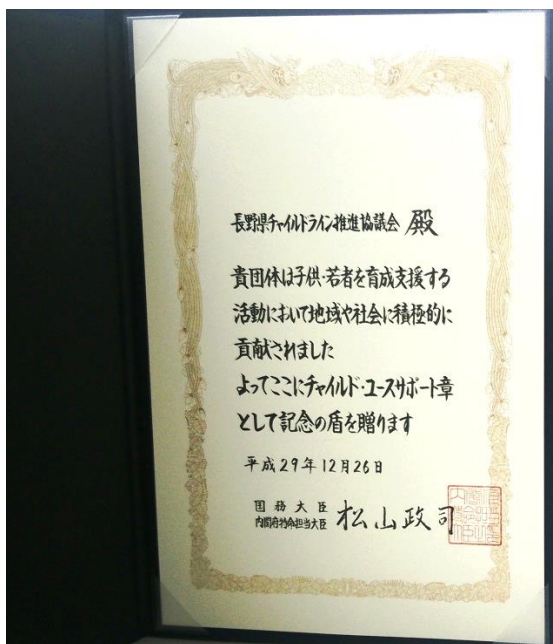 長野県チャイルドライン推進協議会 殿
貴団体は子供・若者を育成支援する
活動において地域や社会に積極的に
貢献されました
よってここにチャイルド・ユースサポート章
として記念の盾を贈ります
平成29年12月26日
国務大臣
内閣府特命担当大臣 松山政司